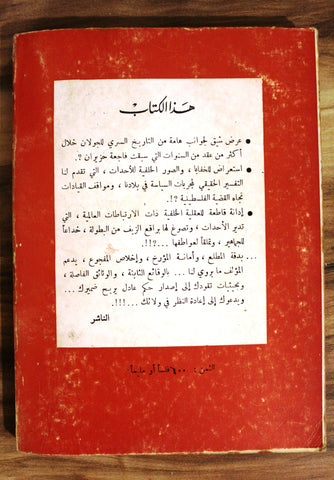 هذا الكتاب
● عرض شيق لجوانب هامة من التاريخ السري للجولان خلال
أكثر من عقد من السنوات التي سبقت فاجعة حزيران ؟.
● استعراض للخفايا ، والصور الخلفية للأحداث ، التي تقدم لنا
التفسير الحقيقي لمجريات السياسة في بلادنا ، ومواقف القيادات
تجاه القضية الفلسطينية ؟!.
● إدانة قاطعة للعقلية الخلفية ذات الارتباطات العالمية ، التي
تدير الأحداث ، وتصوغ لها براقع الزيف من البطولة ، خداعاً
للجماهير ، وتملقاً لعواطفها ...؟!!.
... بدقة المطلع ، وأمانة المؤرخ ، وإخلاص المفجوع ، يدعم
المؤلف ما يروي لنا ... بالوقائع الثابتة ، والوثائق الفاصلة ،
وبحيثيات تقودك إلى إصدار حكم عادل يريح ضميرك ...
ويدعوك إلى إعادة النظر في ولائك ...!!!.
الناشر
الثمن : ٦٠٠ فلساً أو مليماً